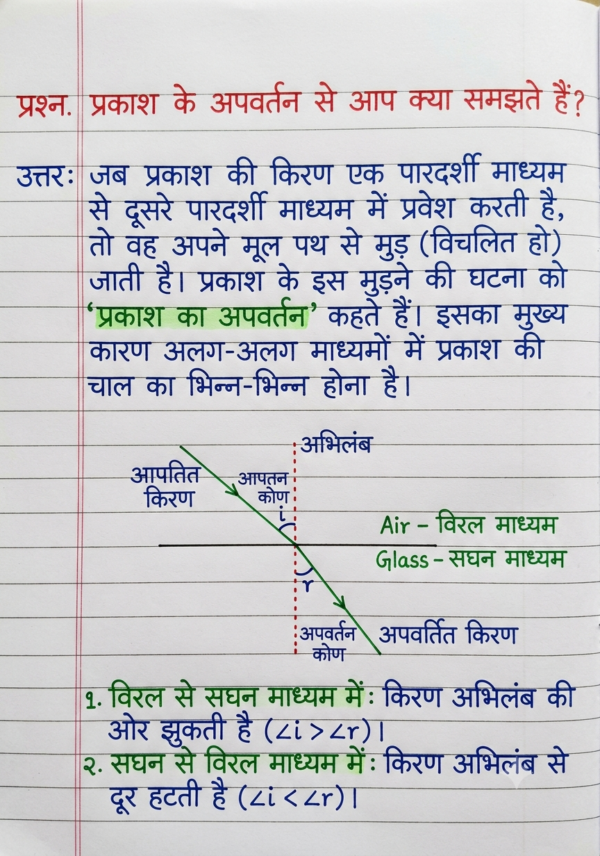 प्रश्न. प्रकाश के अपवर्तन से आप क्या समझते हैं?
उत्तर: जब प्रकाश की किरण एक पारदर्शी माध्यम
से दूसरे पारदर्शी माध्यम में प्रवेश करती है,
तो वह अपने मूल पथ से मुड़ (विचलित हो)
जाती है। प्रकाश के इस मुड़ने की घटना को
‘प्रकाश का अपवर्तन’ कहते हैं। इसका मुख्य
कारण अलग-अलग माध्यमों में प्रकाश की
चाल का भिन्न-भिन्न होना है।
अभिलंब
आपतित
किरण
आपतन
कोण
i
Air – विरल माध्यम
Glass – सघन माध्यम
r
अपवर्तन
कोण
अपवर्तित किरण
१. विरल से सघन माध्यम में: किरण अभिलंब की
ओर झुकती है (∠i > ∠r)।
२. सघन से विरल माध्यम में: किरण अभिलंब से
दूर हटती है (∠i < ∠r)।